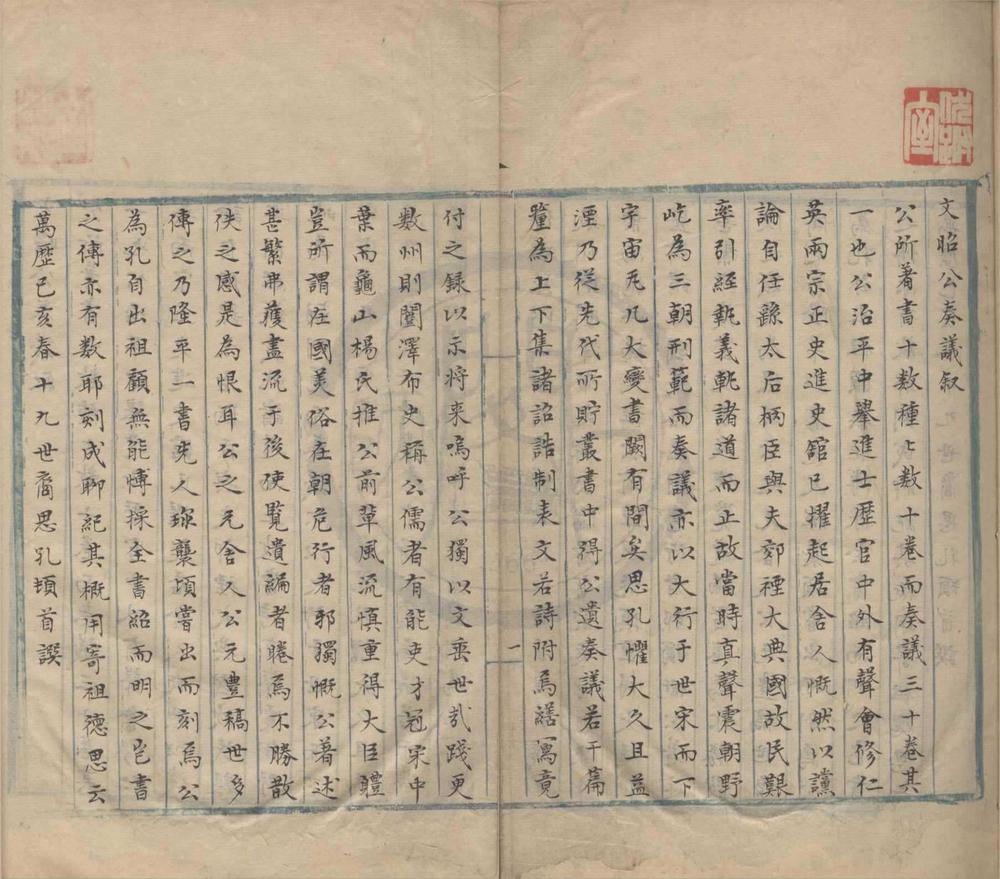 文昭公奏議叙
公所著書十數種七數十卷而奏議三十卷其
一也公治平中舉進士歷官中外有聲會修仁
英兩宗正史進史館已擢起居舍人慨然以讜
論自任繇太后柄臣與夫郊禋大典國故民艱
率引經執義軌諸道而止故當時真聲震朝野
屹為三朝刑範而奏議亦以大行于世宋而下
宇宙旡凡大變書闕有間矣思孔懼大久且益
湮乃從先代所貯叢書中得公遺奏議若干篇
釐為上下集諸詔誥制表文若詩附焉繕寫竟
付之錄以示將来嗚呼公獨以文垂世㢤踐更
數州則闓澤布史稱公儒者有能吏才冠宋中
葉而龜山楊氏推公前輩風流慎重得大臣軆
豈所謂在國美俗在朝危行者邪獨慨公著述
甚繁弗獲盡流于後使覧遺編者睠焉不勝散
佚之感是為恨耳公之元舍人公元豊稿世多
傳之乃隆平一書先人珎襲頃嘗出而刻焉公
為孔自出祖顧無能愽採全書紹而明之豈書
之傳亦有數耶刻成聊紀其概用寄祖德思云
萬歷己亥春十九世裔思孔頓首譔
一